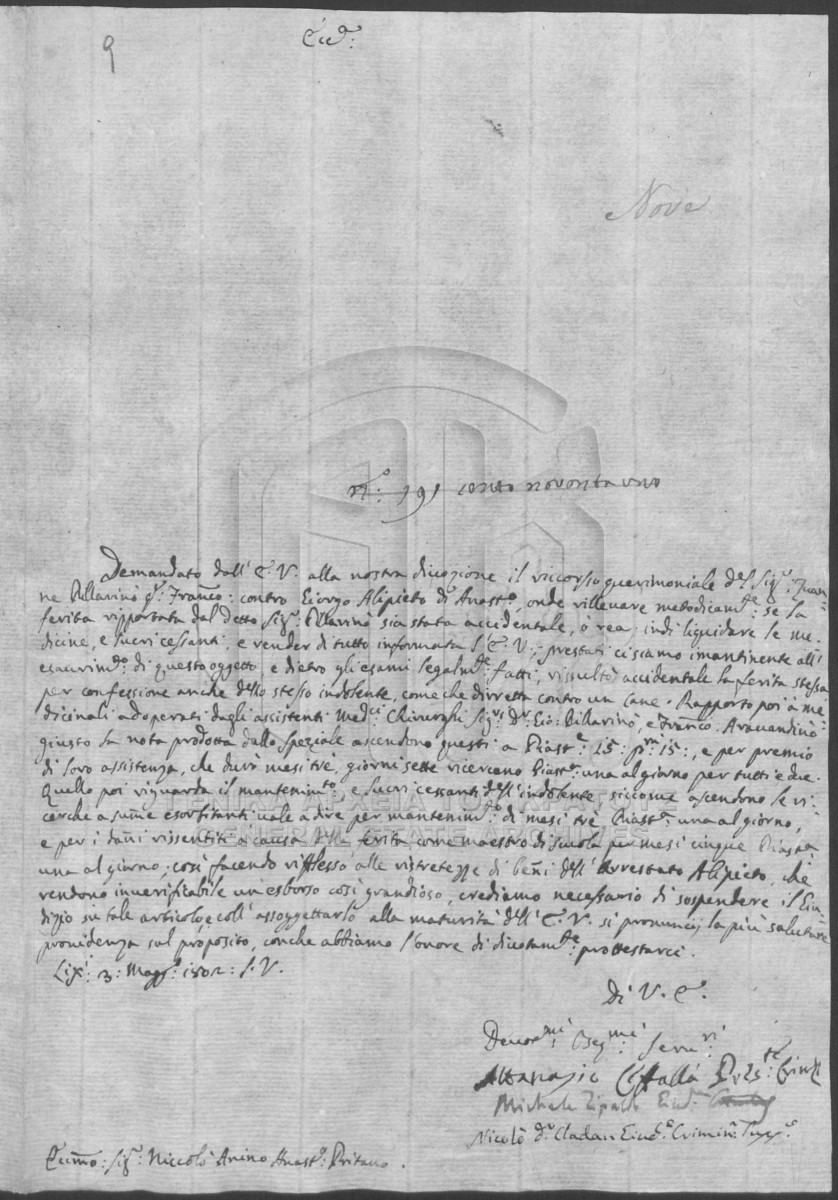 9
Ecc.ª:
Nove
N.º: 191 cento novonta uno
Demandato dall' E. V. alla nostra divozione il riccorso querimoniale del Sig.r: Zuan
ne Pillarinò q.m Franc.o: contro Giorgo Alipieto d.o Anast.o, onde rillevare metodicam.e: se la
ferita ripportata dal detto Sig.r: Pillarinò sia stata accidentale, ò rea; indi liquidare le me-
dicine, e lucri cessanti, e render di tutto informata l' E. V.; prestati ci siamo imantinente all'
esaurim.o: di questo oggetto, e dietro gli esami legalm.e: fatti, rissultò accidentale la ferita stessa
per confessione anche dello stesso indolente, come che dirretta contro un Cane. Rapporto poi à me
dicinali adoperati dagli assistenti Med.ci Chirurghi Sig.ri D.r Gio: Pillarinò, e Franc.o Aravandinò
giusto la nota prodotta dallo speziale ascendono questi a Piast.e 25: p.m 15:, e per premio
di loro assistenza, che durò mesi tre, giorni sette ricercano Piast.e una al giorno per tutti e due.
Quello poi riguarda il mantenim.to e lucri cessanti dell' indolente, siccome ascendono le ri-
cerche a summe esorbitanti vale a dire per mantenim.o: di mesi trè Piast.e una al giorno,
e per i danni rissentiti a causa della ferita come maestro di scuola per mesi cinque Piastre
una al giorno; così facendo riflesso alle ristretezze di beni dell' Arrestato Alipieto, che
rendono inverificabile un esborso così grandioso, crediamo necessario di sospendere il Giu-
dizio su tale articolo, e coll' assoggettarlo alla maturità dell' E. V. si pronuncij la più salutare
providenza sul proposito, con che abbiamo l'onore di divotam.e: prottestarci.
Lix.i: 3: Magg.o 1802: S. V.
Di V. E.
Devot.mi: Oseq.mi: Serv.ri:
Attanasio Cefallà
Michele Zipalli Giud.e
Nicolò D.r Cladan Giud.e Crimin.e
Ecc.mo: Sig.r Niccolò Anino Anast.o: Pritano.
ΓΕΝΙΚΑ ΑΡΧΕΙΑ ΤΟΥ ΚΡΑΤΟΥΣ
GENERAL STATE ARCHIVES